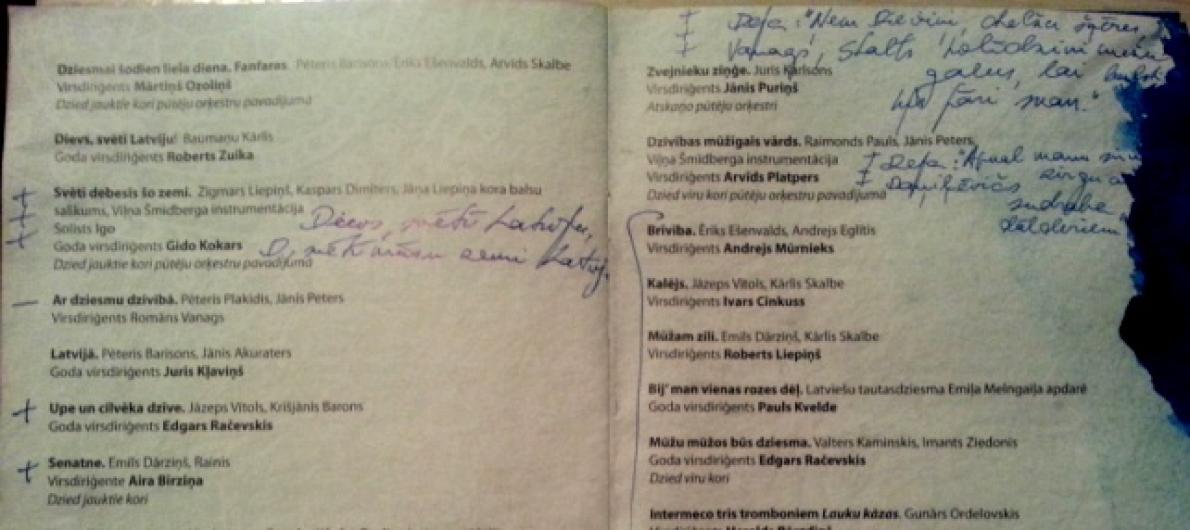 Dziesmai šodien liela diena. Fanfaras. Pēteris Barisons, Ēriks Ešenvalds, Arvīds Skalbe
Virsdiriģents Mārtiņš Ozoliņš
Dzied jauktie kori pūtēju orķestru pavadījumā
Dievs, svētī Latviju! Baumaņu Kārlis
Goda virsdiriģents Roberts Zuika
+ Svēti debesis šo zemi. Zigmars Liepiņš, Kaspars Dimiters, Jāņa Liepiņa kora balsu
+ salikums, Viļņa Šmidberga instrumentācija
Solists Igo
+ Goda virsdiriģents Gido Kokars
Dzied jauktie kori pūtēju orķestru pavadījumā
Dievs, svētī Latviju,
svētī mūsu zemi
— Ar dziesmu dzīvībā. Pēteris Plakidis, Jānis Peters
Virsdiriģents Romāns Vanags
Latvijā. Pēteris Barisons, Jānis Akuraters
Goda virsdiriģents Juris Kļaviņš
+ Upe un cilvēka dzīve. Jāzeps Vītols, Krišjānis Barons
Goda virsdiriģents Edgars Račevskis
+ Senatne. Emīls Dārziņš, Rainis
Virsdiriģente Aira Birziņa
Dzied jauktie kori
Vanags, stalts
galus, lai
pār man."
Zvejnieku ziņģe. Juris Karlsons
Virsdiriģents Jānis Puriņš
Atskaņo pūtēju orķestri
Dzīvības mūžīgais vārds. Raimonds Pauls, Jānis Peters,
Viļņa Šmidberga instrumentācija
Virsdiriģents Arvīds Platpers
Dzied vīru kori pūtēju orķestru pavadījumā
zirgu
sudraba
dālderiem
Brīvība. Ēriks Ešenvalds, Andrejs Eglītis
Virsdiriģents Andrejs Mūrnieks
Kalējs. Jāzeps Vītols, Kārlis Skalbe
Virsdiriģents Ivars Cinkuss
Mūžam zili. Emīls Dārziņš, Kārlis Skalbe
Virsdiriģents Roberts Liepiņš
Bij' man vienas rozes dēļ. Latviešu tautasdziesma Emiļa Melngaiļa apdarē
Goda virsdiriģents Pauls Kvelde
Mūžu mūžos būs dziesma. Valters Kaminskis, Imants Ziedonis
Goda virsdiriģents Edgars Račevskis
Dzied vīru kori
Intermeco trīs tromboniem Lauku kāzas. Gunārs Ordelovskis